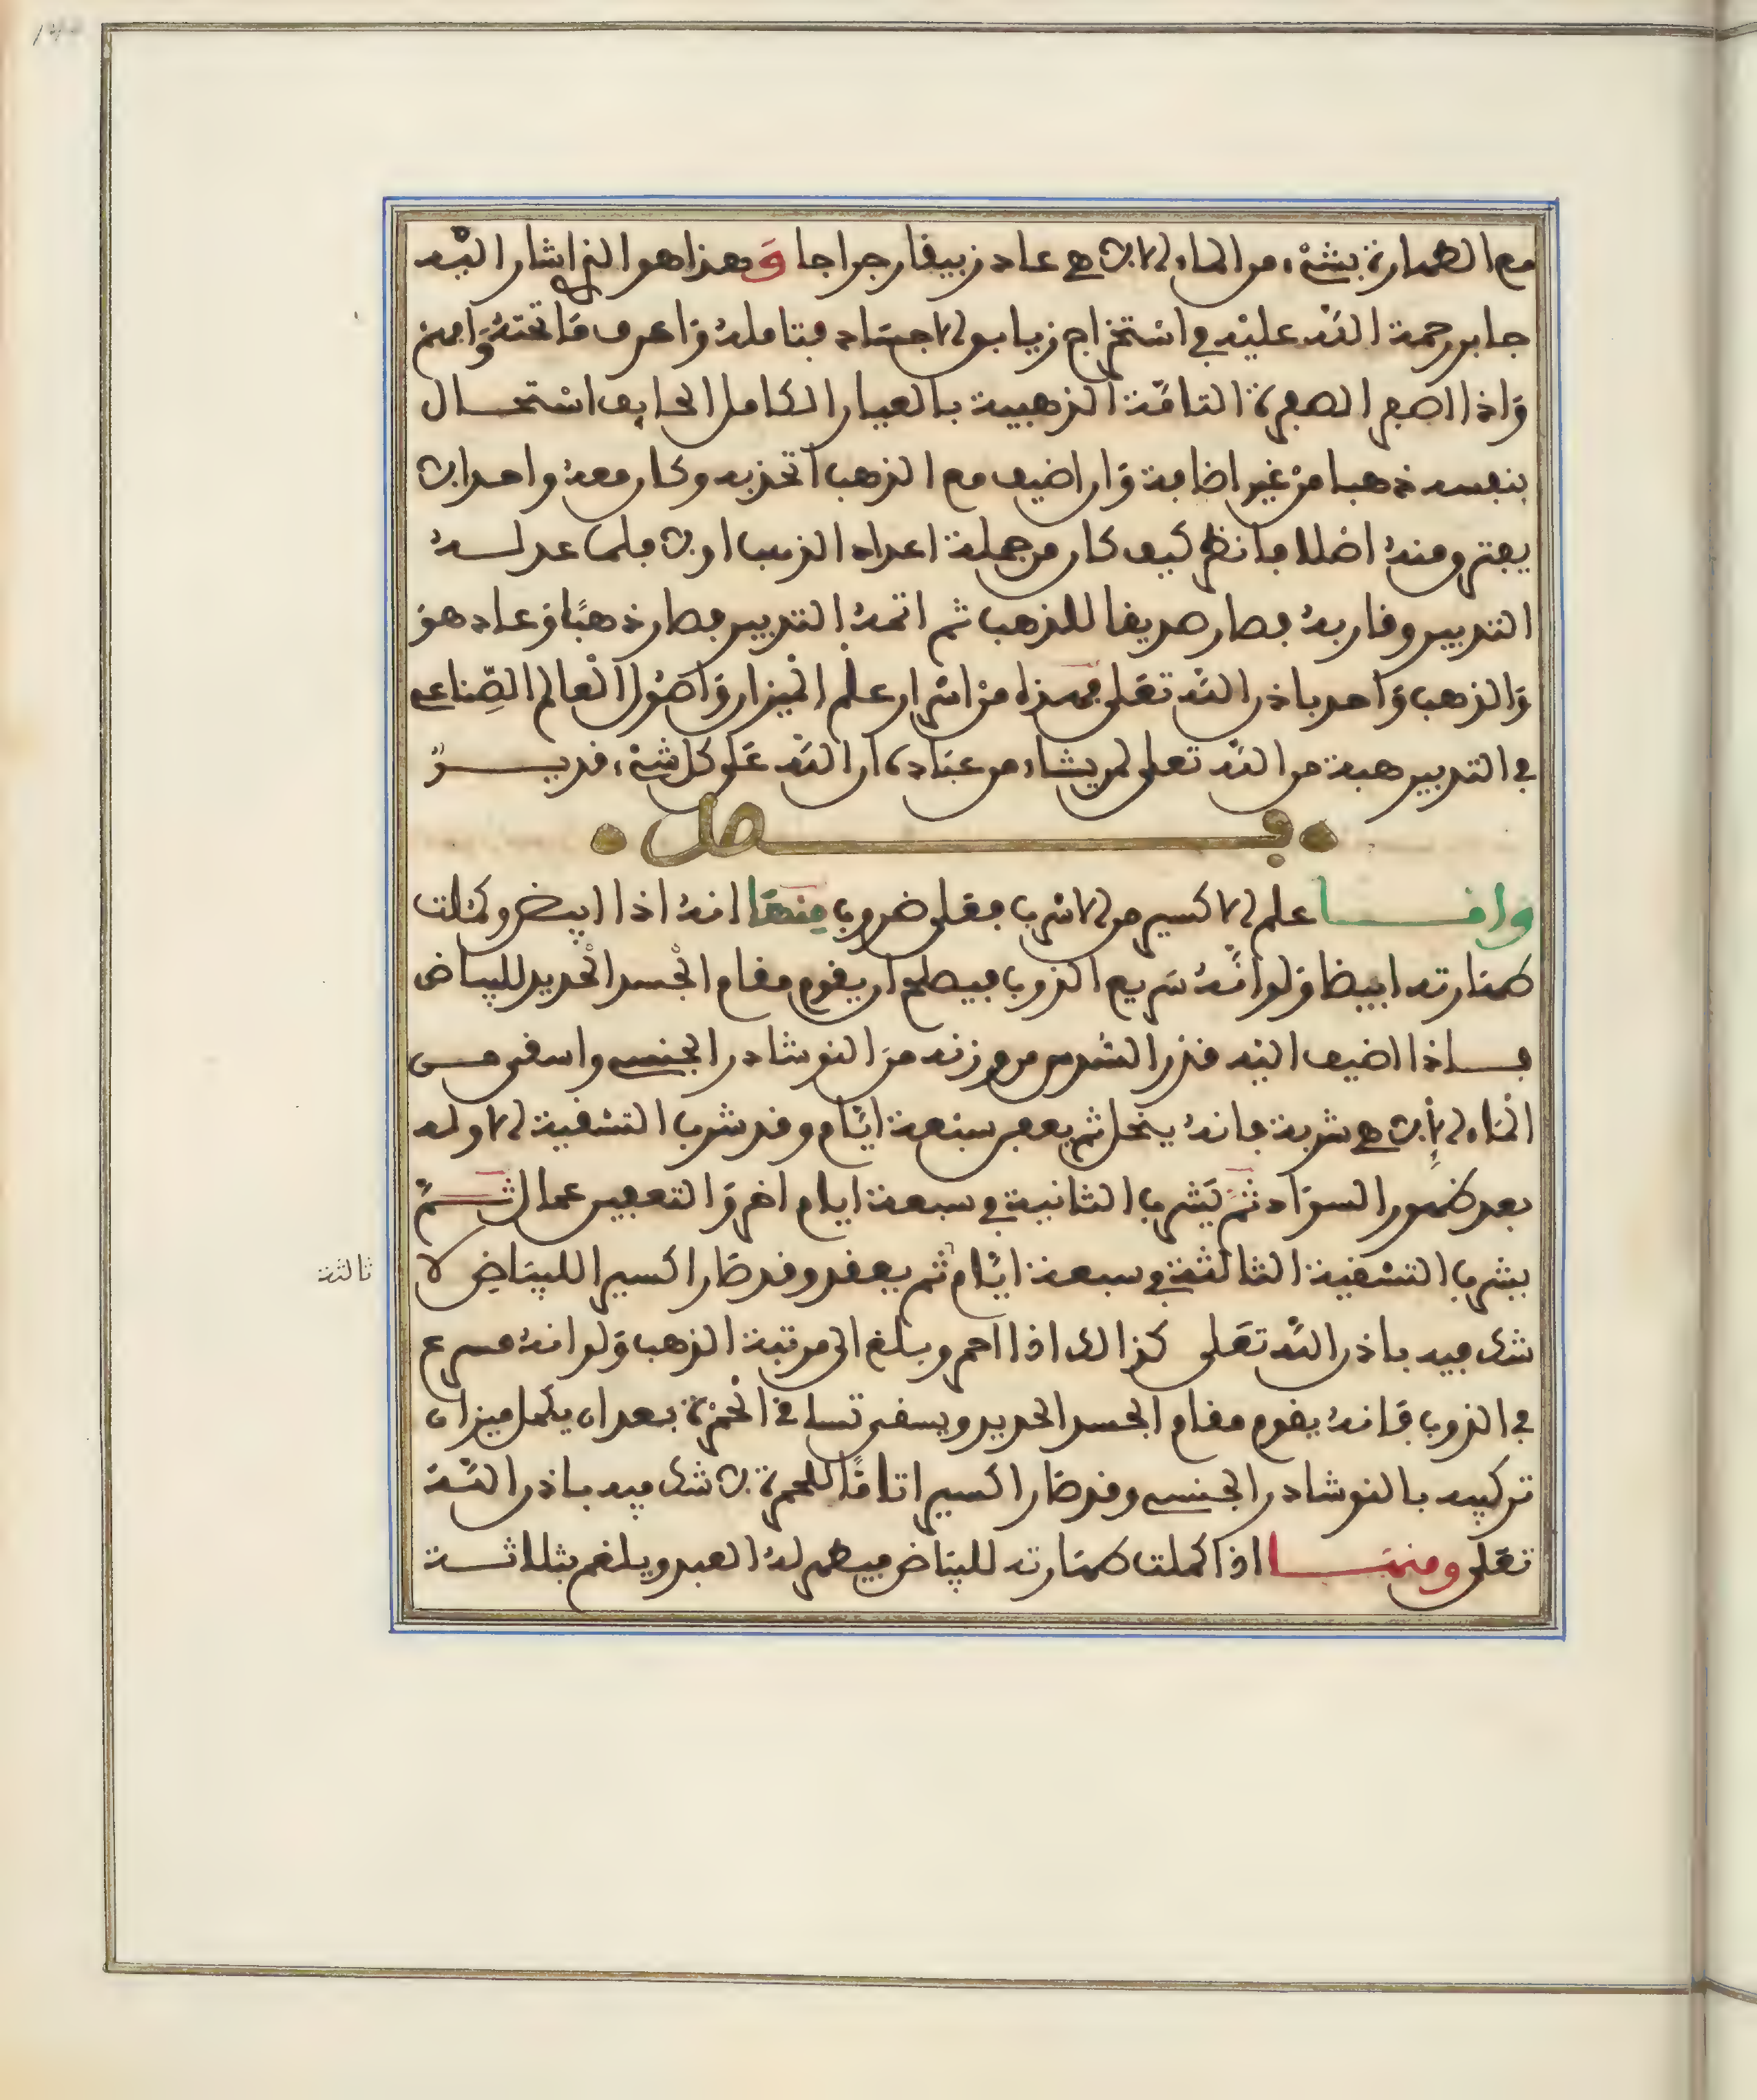 مع الطهارة بشيء من الماء الالهي عاد زيبقا رجراجا وهذا هو الذي اشار اليه
جابر رحمة الله عليه في استخراج زيابق الاجساد فتامله واعرف ما تحته وافهم
واذا اصفر الصفرة التامة الذهبية بالعيار الكامل الخايف استحال
بنفسه ذهبا من غير اضافة وان اضيف مع الذهب اتحد به وكان معه واحدا لا
يفترق منه اصلا فانظر كيف كان من جملة اعداء الذهب اولا فلما عدله
التدبير وقاربه فصار صديقا للذهب ثم اتمه التدبير فصار ذهبا وعاد هو
والذهب واحد باذن الله تعلى فهذا من اسرار علم الميزان واصول العالم الصناعي
في التدبير هبة من الله تعلى لمن يشاء من عباده ان الله على كل شيء قدير
فصل
واما علم الاكسير من الاسرب فعلى ضروب منها انه اذا ابيض وكملت
طهارته ابيضا ولو انه سريع الذوب فيصلح ان يقوم مقام الجسد الجديد للبياض
فاذا اضيف اليه قدر السدس من وزنه من النوشادر الجنسي واسقي من
الماء الالهي شربة فانه ينحل ثم يعفن سبعة ايام وقد شرب التسقية الاوله
بعد ظهور السواد ثم يشرب الثانية في سبعة ايام اخر والتعفين عمال ثم
يشرب التسقية الثالثة في سبعة ايام ثم يعقد وقد صار اكسيرا للبياض لا
ثالثة
شك فيه باذن الله تعلى كذالك اذا احمر وبلغ الى مرتبة الذهب ولو انه مسرع
في الذوب فانه يقوم مقام الجسد الجديد ويسقى تساقي الحمرة بعد ان يكمل ميزان
تركيبه بالنوشادر الجنسي وقد صار اكسيرا تاما للحمرة لا شك فيه باذن الله
تعلى ومنها اذا كملت طهارته للبياض فيطهر له العبد ويلغم بثلاثة